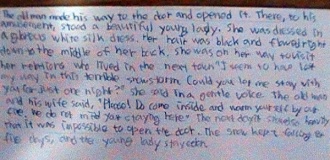 The old man made his way to the door and opened it. There, to his
amazement, stood a beautiful young lady. She was dressed in
a glorious white silk dress. Her hair was black and flowed right
down to the middle of her back. she was on her way to visit
her relations who lived in the next town. "I seem to have lost
my way in this terrible snowstorm. Could you let me stay with
you for just one night?" she said in a gentle voice. The old man
and his wife said, "Please! Do come inside and warm yourself by our
fire. We do not mind your staying here." The next day it snowed so heavily
that it was impossible to open the door. The snow kept falling for
five days, and the young lady stayed on.